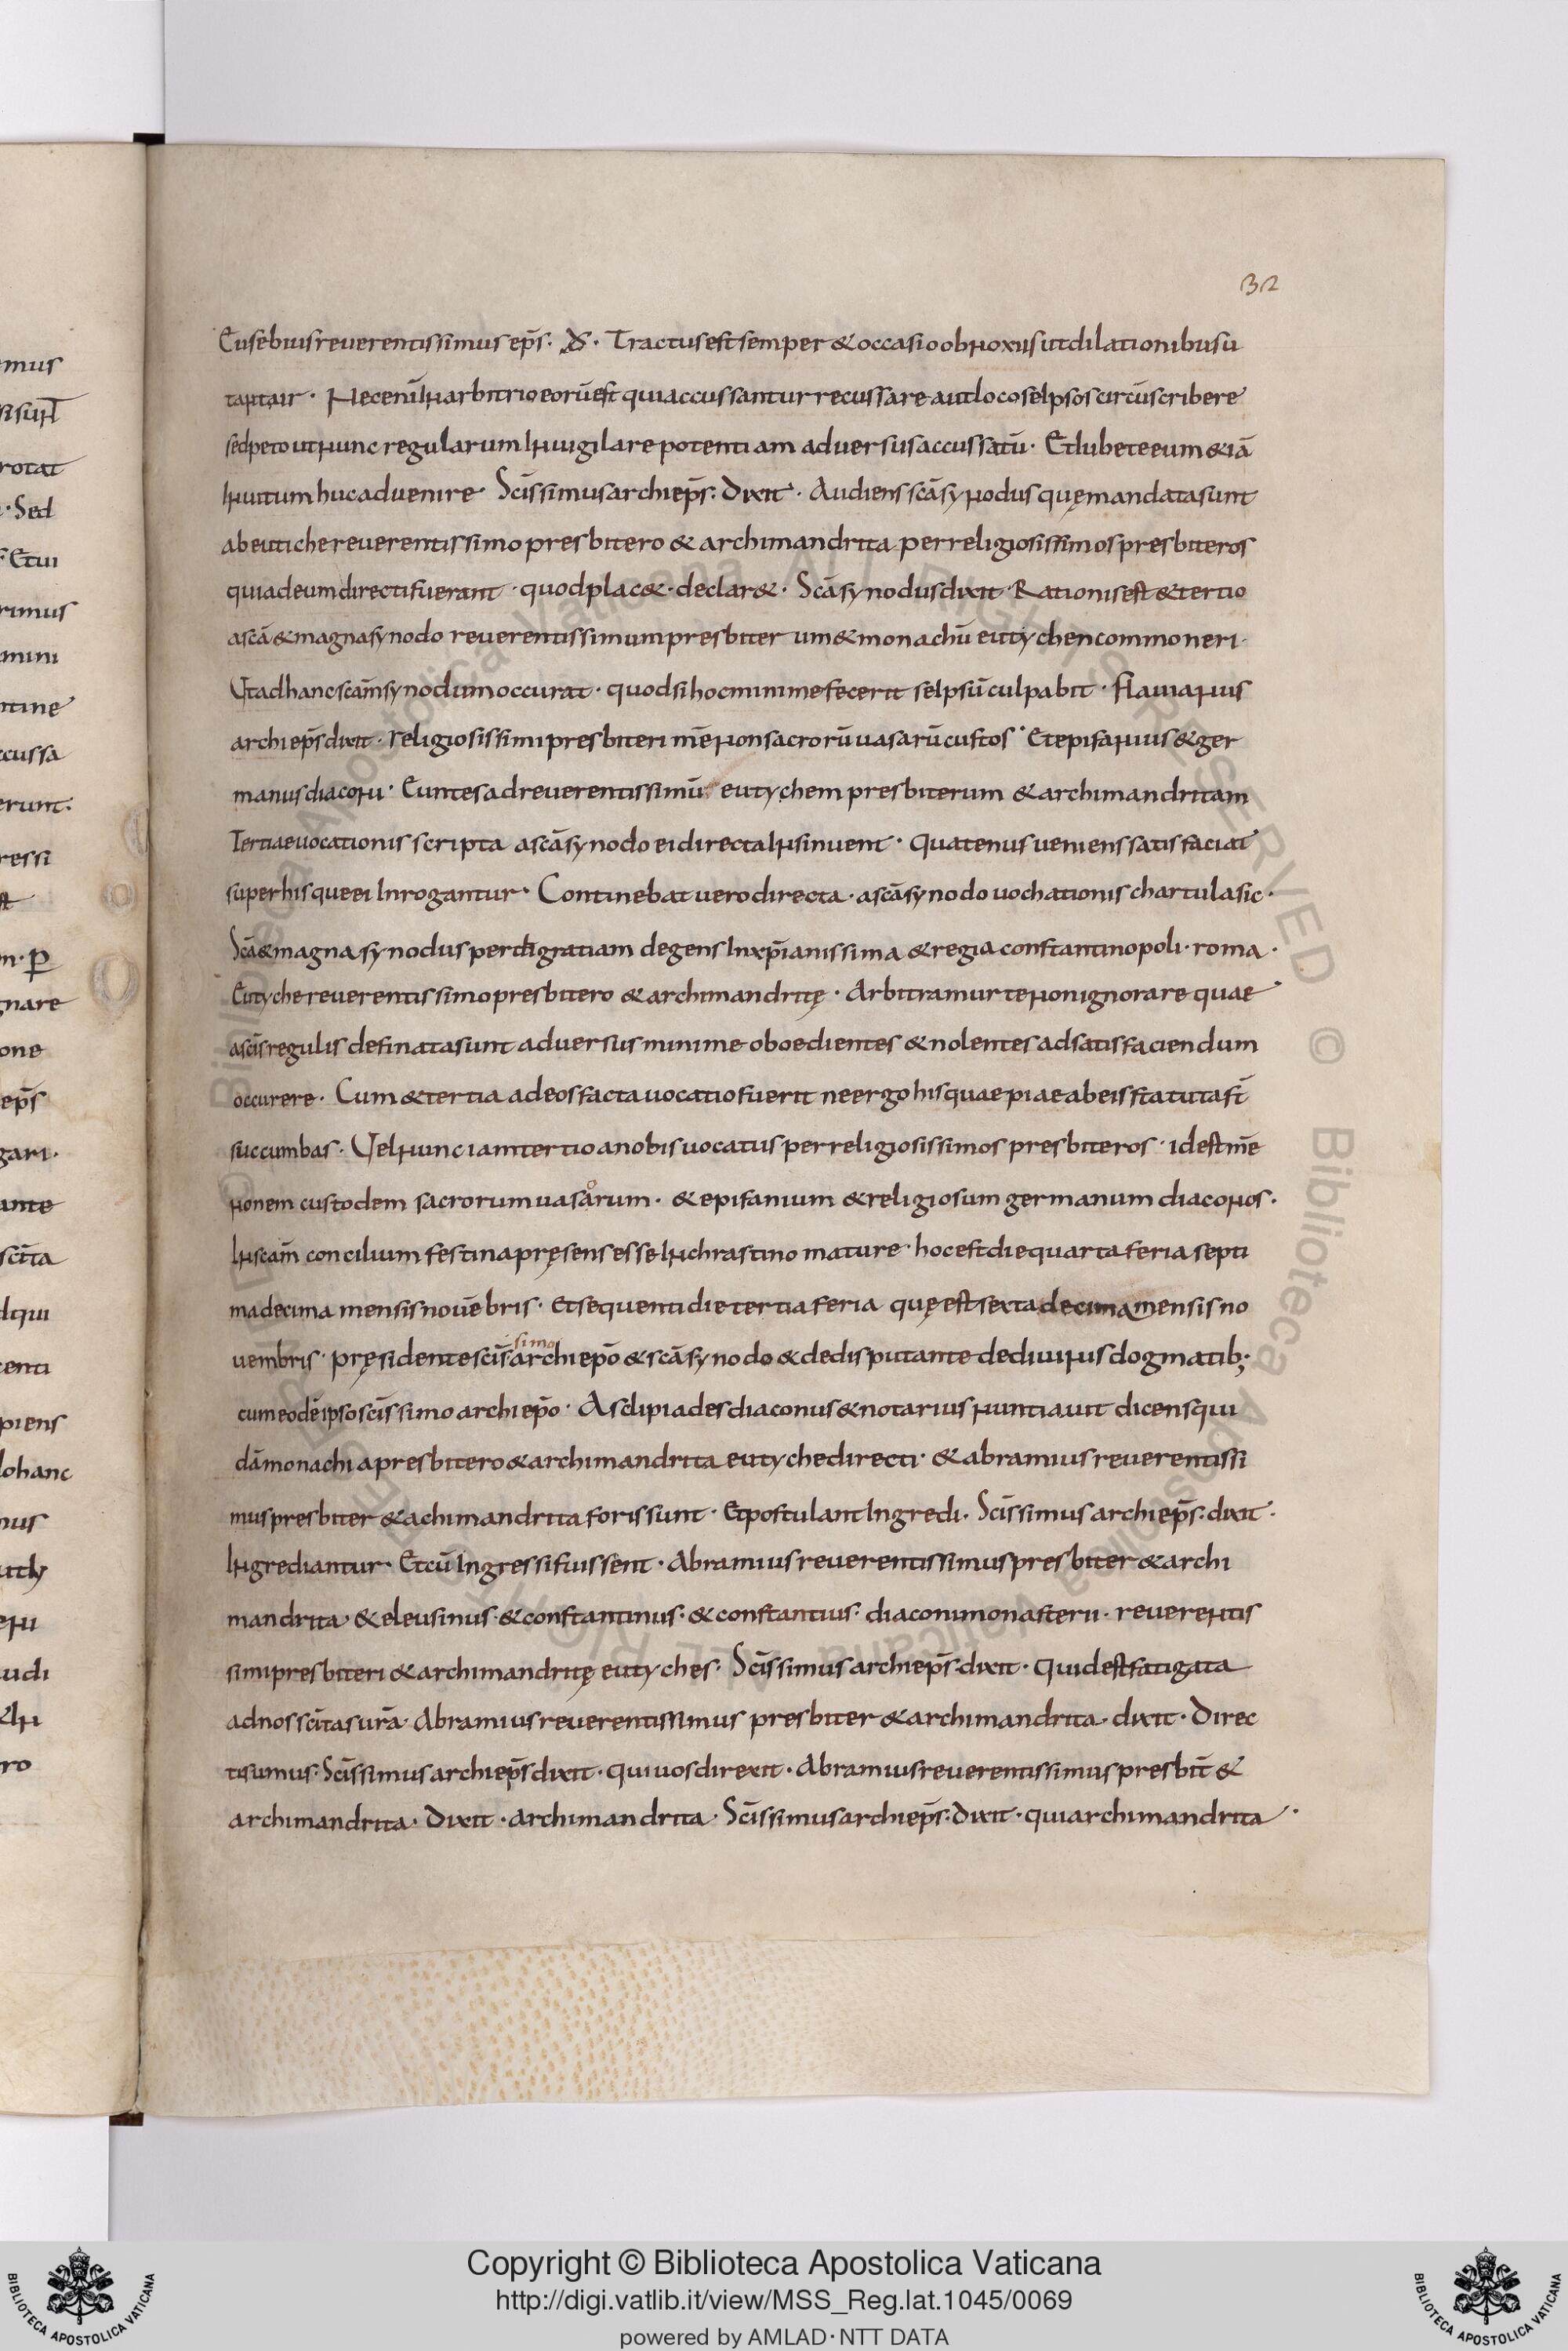 32
Eusebius reuerentissimus ep̄s. dx̄. Tractus est semper & occasio obnoxiis ut dilationibus u
tantair. Nec eni͞ In arbitrio eorū est qui accussantur recussare aut loco seIpsos circūscribere
sed peto ut nunc regularum Inuigilare potentiam aduersus accussatū. Et Iubete eum & iā
Inuitum huc aduenire. Sc̄issimus archiep̄s. Dixit. Audiens sc̄a synodus quę mandata sunt
ab eutiche reuerentissimo presbitero & archimandrita per religiosissimos presbiteros
qui ad eum directi fuerant. quod plac&. declar&. Sc̄a synodus dixit. Rationis est & tertio
a sc̄a & magna synodo reuerentissimum presbiterum & monachū eutychen commoneri.
Ut ad hanc sc̄am synodum occurat. quod si hoc minime fecerit seIpsū culpabit. Flauianus
archiep̄s dixit. religiosissimi presbiteri mēnon sacrorū uasarū custos. Et epifanius & ger
manus diaconi. Euntes ad reuerentissimū eutychem presbiterum & archimandritam
Tertiae uocationis scripta a sc̄a synodo ei directa Insinuent. Quatenus ueniens satisfaciat
super his que ei Inrogantur. Continebat uero directa. a sc̄a synodo uochationis chartula sic.
Sc̄a & magna synodus per dī gratiam degens In xp̄ianissima & regia constantinopoli. roma.
Eutyche reuerentissimo presbitero & archimandritę. Arbitramur te non ignorare quae
a sc̄is regulis definata sunt aduersus minime oboedientes & nolentes ad satisfaciendum
occurere. Cum & tertia ad eos facta uocatio fuerit ne ergo his quae piae ab eis statuta st̄
succumbas. Uel nunc iam tertio a nobis uocatus per religiosissimos presbiteros. id est mē
nonem custodem sacrorum uasårum. & epifanium & religiosum germanum diaconos.
In sc̄am concilium festina pręsens esse In chrastino mature. hoc est die quarta feria septi
ma decima mensis nouēbris. Et sequenti die tertia feria quę est sexta decima mensis no
simo
uembris. pręsidente sc̄is archiep̄o & sc̄a synodo & de disputante de diuinis dogmatib;
cum eodē ipso sc̄issimo archiep̄o. Asclipiades diaconus & notarius nuntiauit dicens qui
dā monachi a presbitero & archimandrita eutyche directi. & abramius reuerentissi
mus presbiter & achimandrita foris sunt. Et postulant Ingredi. Sc̄issimus archiep̄s. dixit.
Ingrediantur. Et cū Ingressi fuissent. Abramius reuerentissimus presbiter & archi
mandrita. & eleusinus. & constantinus. & constantius. diaconi monasterii. reuerentis
simi presbiteri & archimandritę eutyches. Sc̄issimus archiep̄s. dixit. Quid est fatigata
ad nos sc̄itas urā. Abramius reuerentissimus presbiter & archimandrita. dixit. Direc
ti sumus. Sc̄issimus archiep̄s dixit. qui uos direxit. Abramius reuerentissimus presbit̄ &
archimandrita. Dixit. archimandrita. Sc̄issimus archiep̄s. Dixit. qui archimandrita.
Copyright © Biblioteca Apostolica Vaticana
http://digi.vatlib.it/view/MSS_Reg.lat.1045/0069
powered by AMLAD·NTT DATA